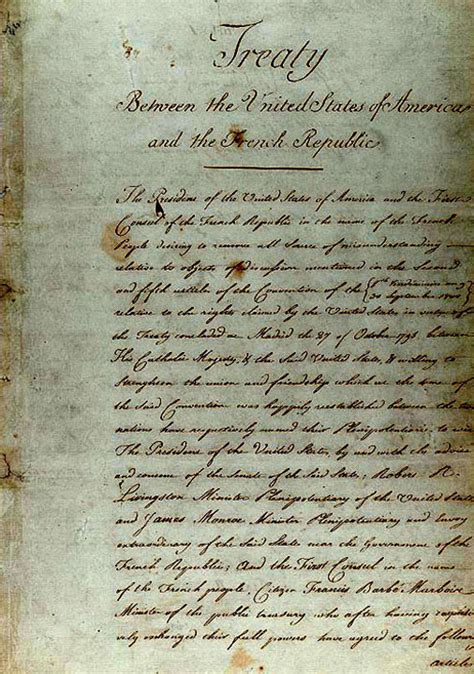 Treaty
Between the United States of America
and the French Republic
The President of the United States of America and the First
Consul of the French Republic in the name of the French
People desiring to remove all Source of misunderstanding
relative to objects of discussion mentioned in the Second
and fifth articles of the Convention of the
30 September 1800
relative to the rights claimed by the United States in virtue of
the Treaty concluded at Madrid the 27 of October 1795, between
His Catholic Majesty, & the Said United States, & willing to
Strengthen the union and friendship which at the time of
the Said Convention was happily reestablished between the two
nations have respectively named their Plenipotentiaries to wit
The President of the United States, by and with the advice
and consent of the Senate of the Said States; Robert R.
Livingston Minister Plenipotentiary of the United States
and James Monroe Minister Plenipotentiary and Envoy
extraordinary of the Said States near the Government of the
French Republic; And the First Consul in the name
of the French people, Citizen Francis Barbé Marbois
Minister of the public treasury who after having respecti
vely exchanged their full powers have agreed to the follow
articles